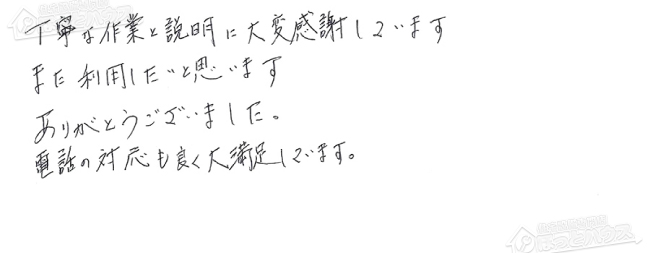 丁寧な作業と説明に大変感謝しています
また利用したいと思います
ありがとうございました。
電話の対応も良く大満足しています。